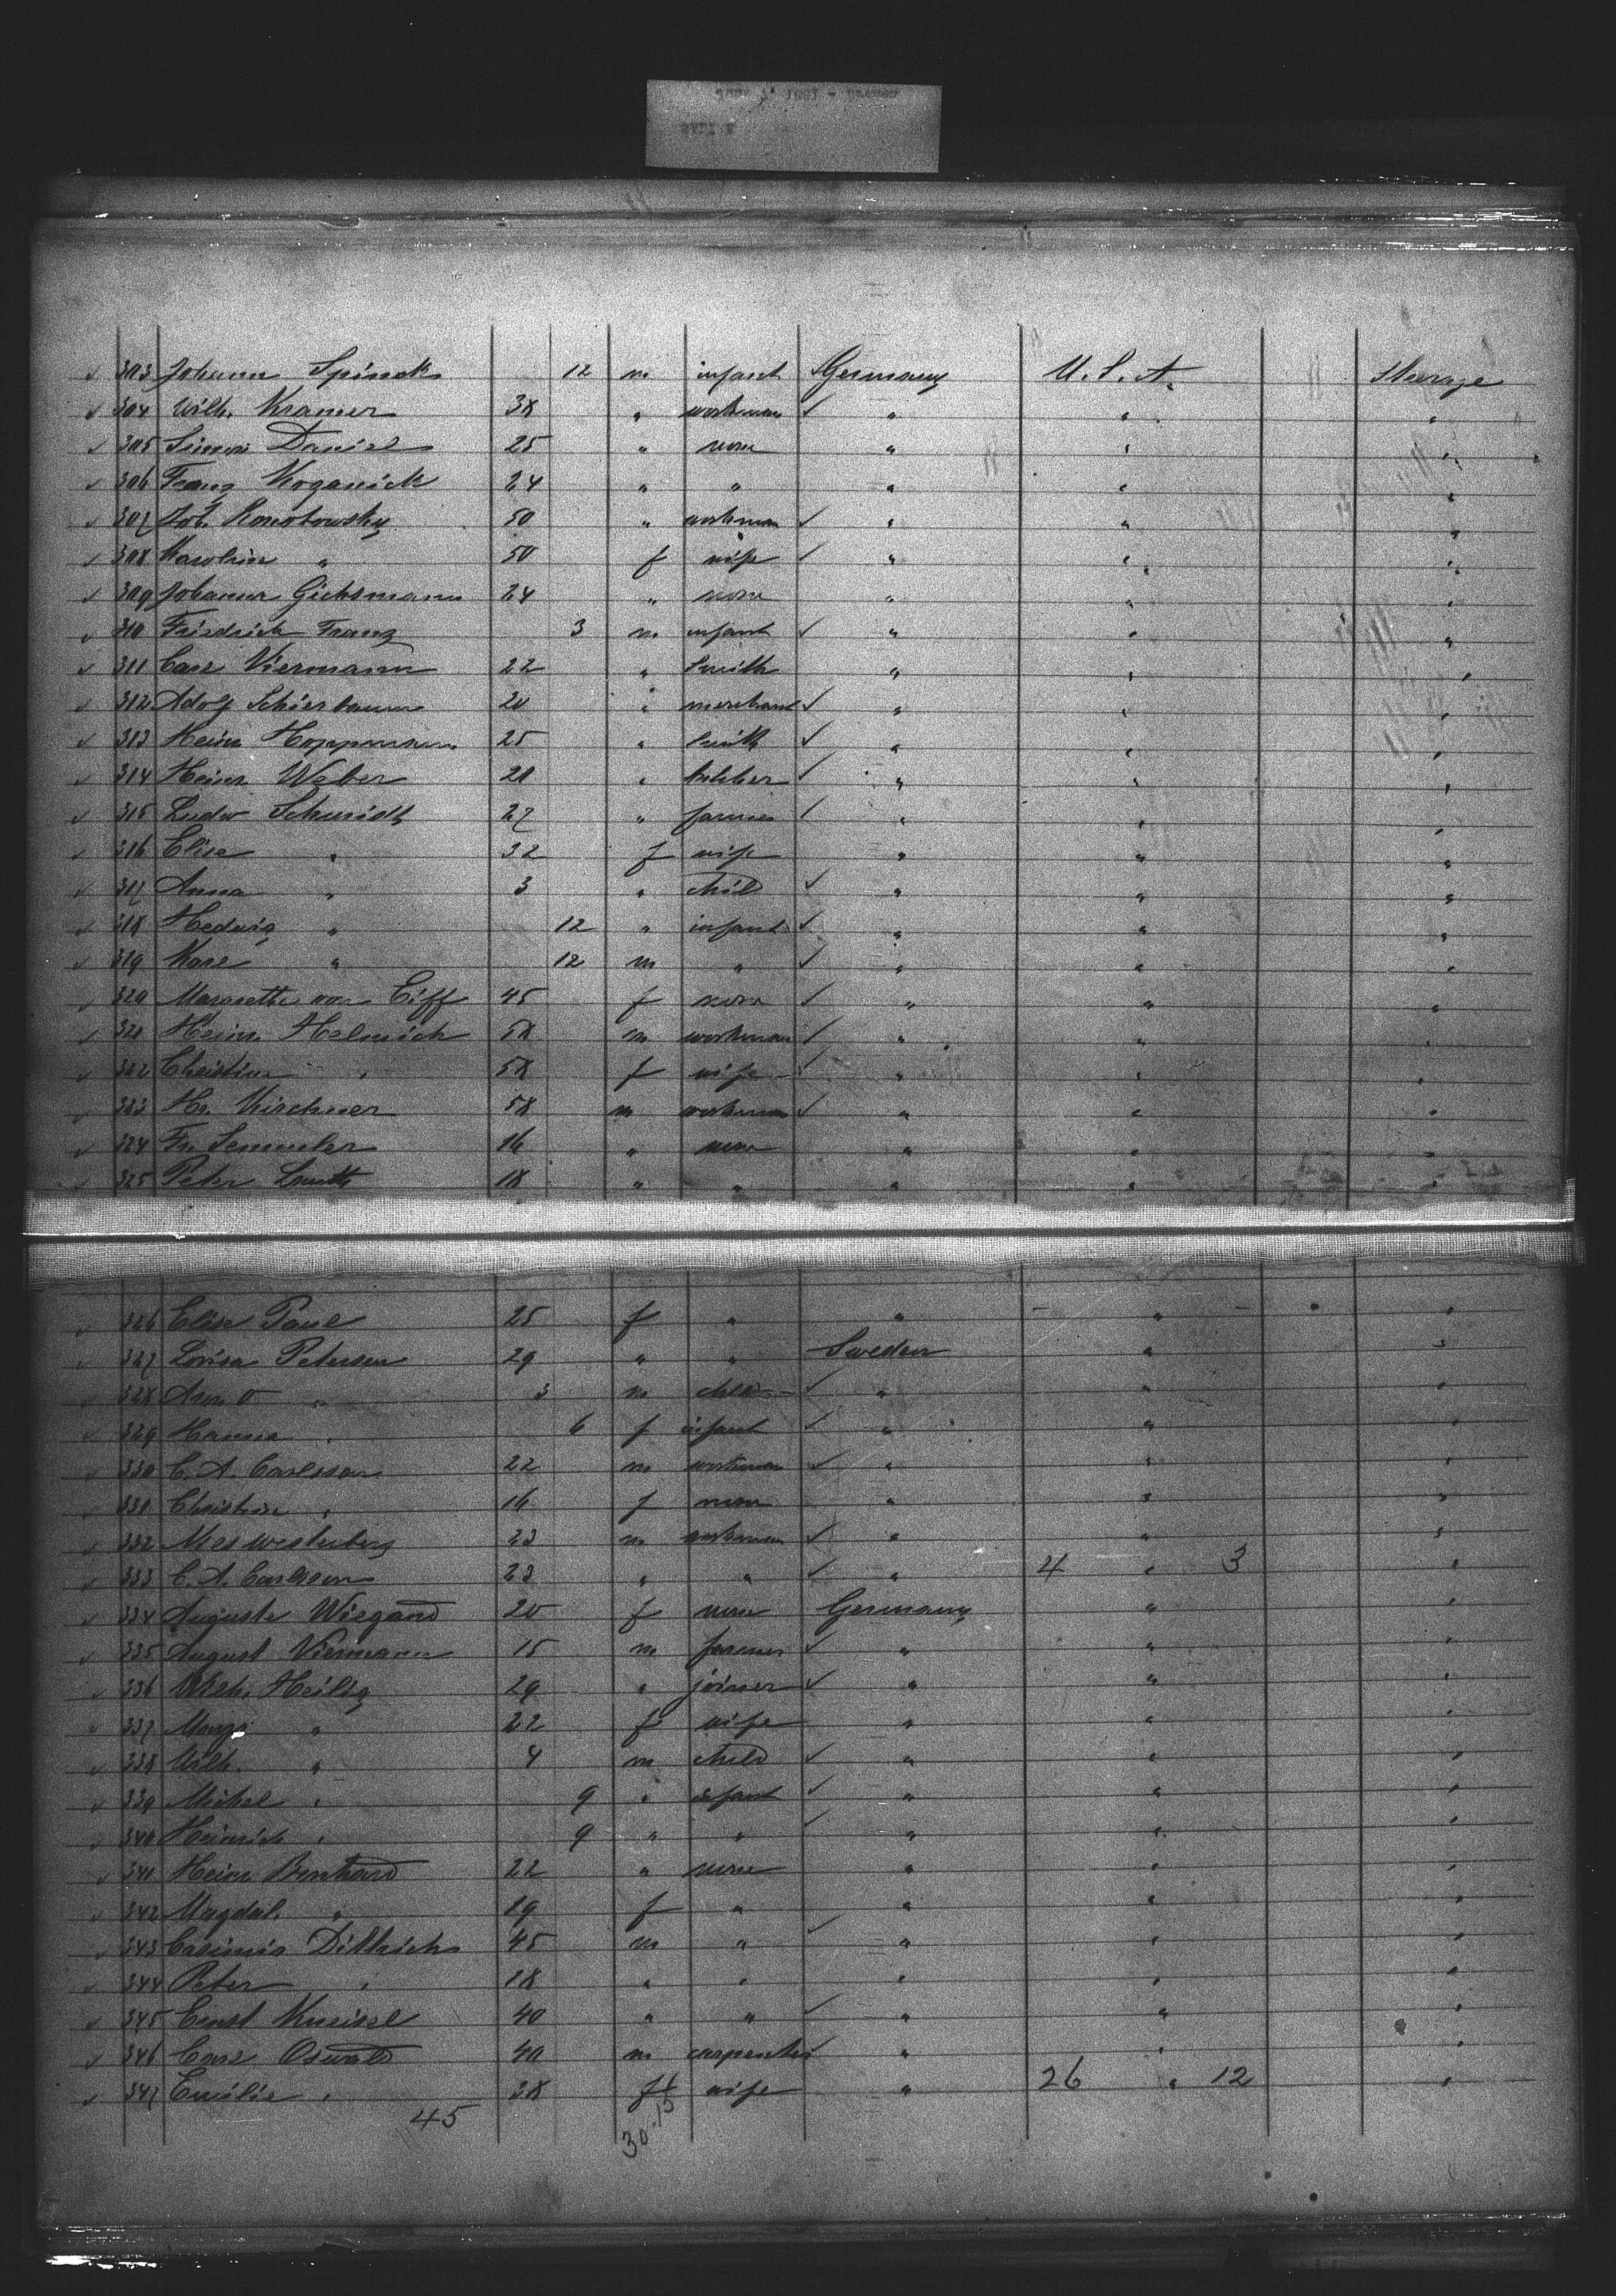 303 Johann Spinek 12 m infant Germany U.S.A. Steerage
304 Wilh. Kramer 38 " workman " " "
305 Simon Daniel 25 " none " " "
306 Franz Koganick 24 " " " " "
307 Joh. Konobowsky 50 " workman " " "
308 Karoline " 50 f wife " " "
309 Johanna Gichsmann 24 " none " " "
310 Friedrich Franz 3 m infant " " "
311 Carl Viermann 22 " Smith " " "
312 Adolf Schierbaum 20 " merchant " " "
313 Heinr Hoppmann 25 " Smith " " "
314 Heinr Weber 21 " " " "
315 Ludw Schmidt 27 " farmer " " "
316 Elise " 32 f wife " " "
317 Anna " 3 " child " " "
318 Hedwig " 12 " infant " " "
319 Karl " 12 m " " " "
320 von Ciff 45 f none " " "
321 Heinr. Helmich 58 m workman " " "
322 Christine " 58 f wife " " "
323 Hr. Kirchner 58 m workman " " "
324 Fr. Semmler 16 " none " " "
325 Peter 18 " " " " "
326 Elise Paul 25 f " " " "
327 Lovisa Petersen 29 " " Sweden " "
328 " 3 m child " " "
329 Hanna " 6 f infant " " "
330 C. A. Carlsson 22 m workman " " "
331 Christine " 16 f none " " "
332 Westerberg 23 m workman " " "
333 C. A. Carlsson 23 " " " 4 " 3 "
334 Auguste Wiegand 20 f none Germany " "
335 August Viermann 15 m farmer " " "
336 Wilh. Heilig 29 " joiner " " "
337 " 22 f wife " " "
338 Wilh. " 4 m child " " "
339 Michel " 9 " infant " " "
340 Heinrich " 9 " " " " "
341 Heinr Bernhard 22 " none " " "
342 Magdal. " 19 f " " " "
343 Casimir Dittrich 45 m " " " "
344 Peter " 18 " " " " "
345 Ernst Kneisel 40 " " " " "
346 Carl Oswald 40 m carpenter " " "
347 Emilie " 38 f wife " 26 " 12 "
45 30-15